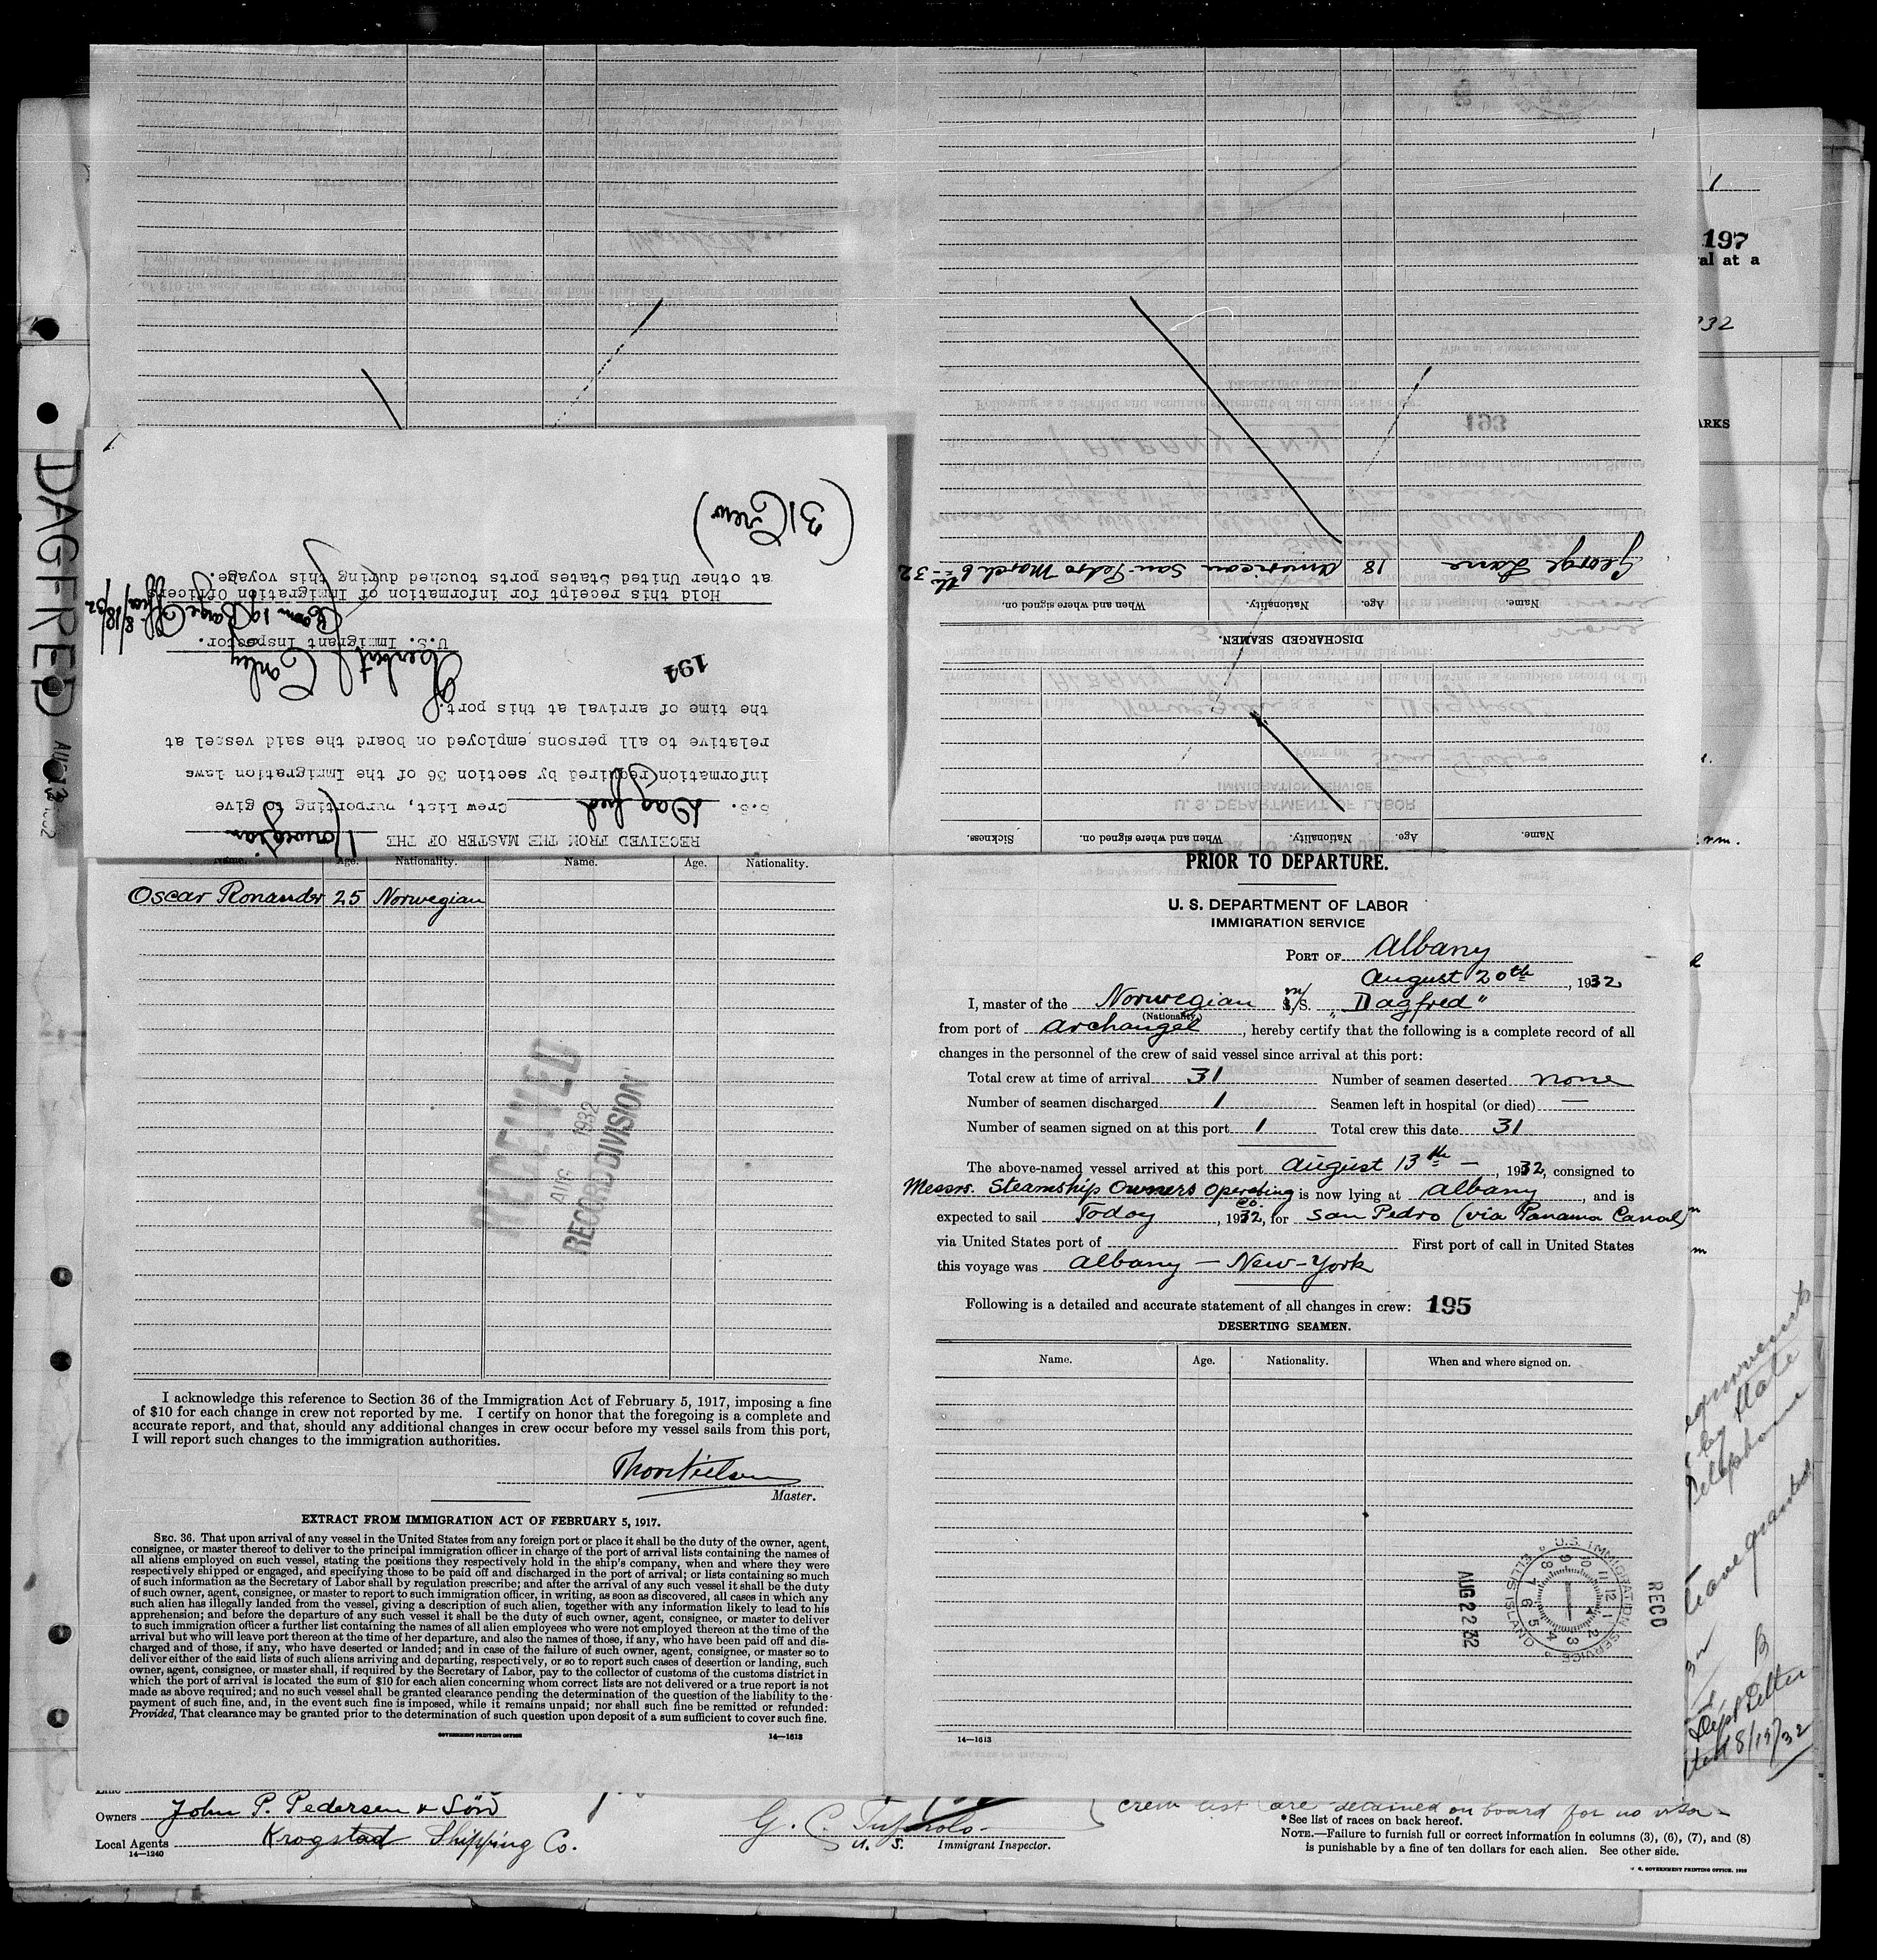 197
val at a
ARKS
DAGFRED
DISCHARGED SEAMEN.
Name. Age. Nationality. When and where signed on.
George Lane 18 American San Pedro March 6th - 32
Name. Age. Nationality. When and where signed on. Sickness.
193
RECEIVED FROM THE MASTER OF THE Norwegian
S.S. Dagfred Crew List, purporting to give
information required by section 36 of the Immigration laws
relative to all persons employed on board the said vessel at
the time of arrival at this port.
194
Herbert Conley
U.S. Immigrant Inspector.
Room 19 Barge Office
8/18/32
Hold this receipt for information of Immigration Officers
at other United States ports touched during this voyage.
(31 Crew)
Name. Age. Nationality. Name. Age. Nationality.
Oscar Ronander 25 Norwegian
RECEIVED
AUG 1932
RECORD DIVISION
I acknowledge this reference to Section 36 of the Immigration Act of February 5, 1917, imposing a fine
of $10 for each change in crew not reported by me. I certify on honor that the foregoing is a complete and
accurate report, and that, should any additional changes in crew occur before my vessel sails from this port,
I will report such changes to the immigration authorities.
Thor Nielsen
Master.
EXTRACT FROM IMMIGRATION ACT OF FEBRUARY 5, 1917.
SEC. 36. That upon arrival of any vessel in the United States from any foreign port or place it shall be the duty of the owner, agent,
consignee, or master thereof to deliver to the principal immigration officer in charge of the port of arrival lists containing the names of
all aliens employed on such vessel, stating the positions they respectively hold in the ship's company, when and where they were
respectively shipped or engaged, and specifying those to be paid off and discharged in the port of arrival; or lists containing so much
of such information as the Secretary of Labor shall by regulation prescribe; and after the arrival of any such vessel it shall be the duty
of such owner, agent, consignee, or master to report to such immigration officer, in writing, as soon as discovered, all cases in which any
such alien has illegally landed from the vessel, giving a description of such alien, together with any information likely to lead to his
apprehension; and before the departure of any such vessel it shall be the duty of such owner, agent, consignee, or master to deliver
to such immigration officer a further list containing the names of all alien employees who were not employed thereon at the time of the
arrival but who will leave port thereon at the time of her departure, and also the names of those, if any, who have been paid off and dis-
charged and of those, if any, who have deserted or landed; and in case of the failure of such owner, agent, consignee, or master so to
deliver either of the said lists of such aliens arriving and departing, respectively, or so to report such cases of desertion or landing, such
owner, agent, consignee, or master shall, if required by the Secretary of Labor, pay to the collector of customs of the customs district in
which the port of arrival is located the sum of $10 for each alien concerning whom correct lists are not delivered or a true report is not
made as above required; and no such vessel shall be granted clearance pending the determination of the question of the liability to the
payment of such fine, and, in the event such fine is imposed, while it remains unpaid; nor shall such fine be remitted or refunded:
Provided, That clearance may be granted prior to the determination of such question upon deposit of a sum sufficient to cover such fine.
GOVERNMENT PRINTING OFFICE 14—1613
PRIOR TO DEPARTURE.
U. S. DEPARTMENT OF LABOR
IMMIGRATION SERVICE
PORT OF Albany
August 20th, 1932
I, master of the Norwegian m/S. "Dagfred"
(Nationality.)
from port of Archangel, hereby certify that the following is a complete record of all
changes in the personnel of the crew of said vessel since arrival at this port:
Total crew at time of arrival 31 Number of seamen deserted none
Number of seamen discharged 1 Seamen left in hospital (or died) —
Number of seamen signed on at this port 1 Total crew this date 31
The above-named vessel arrived at this port August 13th —, 1932, consigned to
Messrs. Steamship Owners Operating Co. is now lying at Albany, and is
expected to sail Today, 1932, for San Pedro (via Panama Canal)
via United States port of First port of call in United States
this voyage was Albany — New-York
Following is a detailed and accurate statement of all changes in crew: 195
DESERTING SEAMEN.
Name. Age. Nationality. When and where signed on.
U.S. IMMIGRATION SERVICE ELLIS ISLAND
AUG 22 32
RECD
14—1613
by State
Telephone
leave granted
Dept Letter
8/19/32
Owners John P. Pedersen & Søn
Local Agents Krogstad Shipping Co.
14—1240
U. S. Immigrant Inspector.
crew list are detained on board for no visa -
*See list of races on back hereof.
NOTE.—Failure to furnish full or correct information in columns (3), (6), (7), and (8)
is punishable by a fine of ten dollars for each alien. See other side.